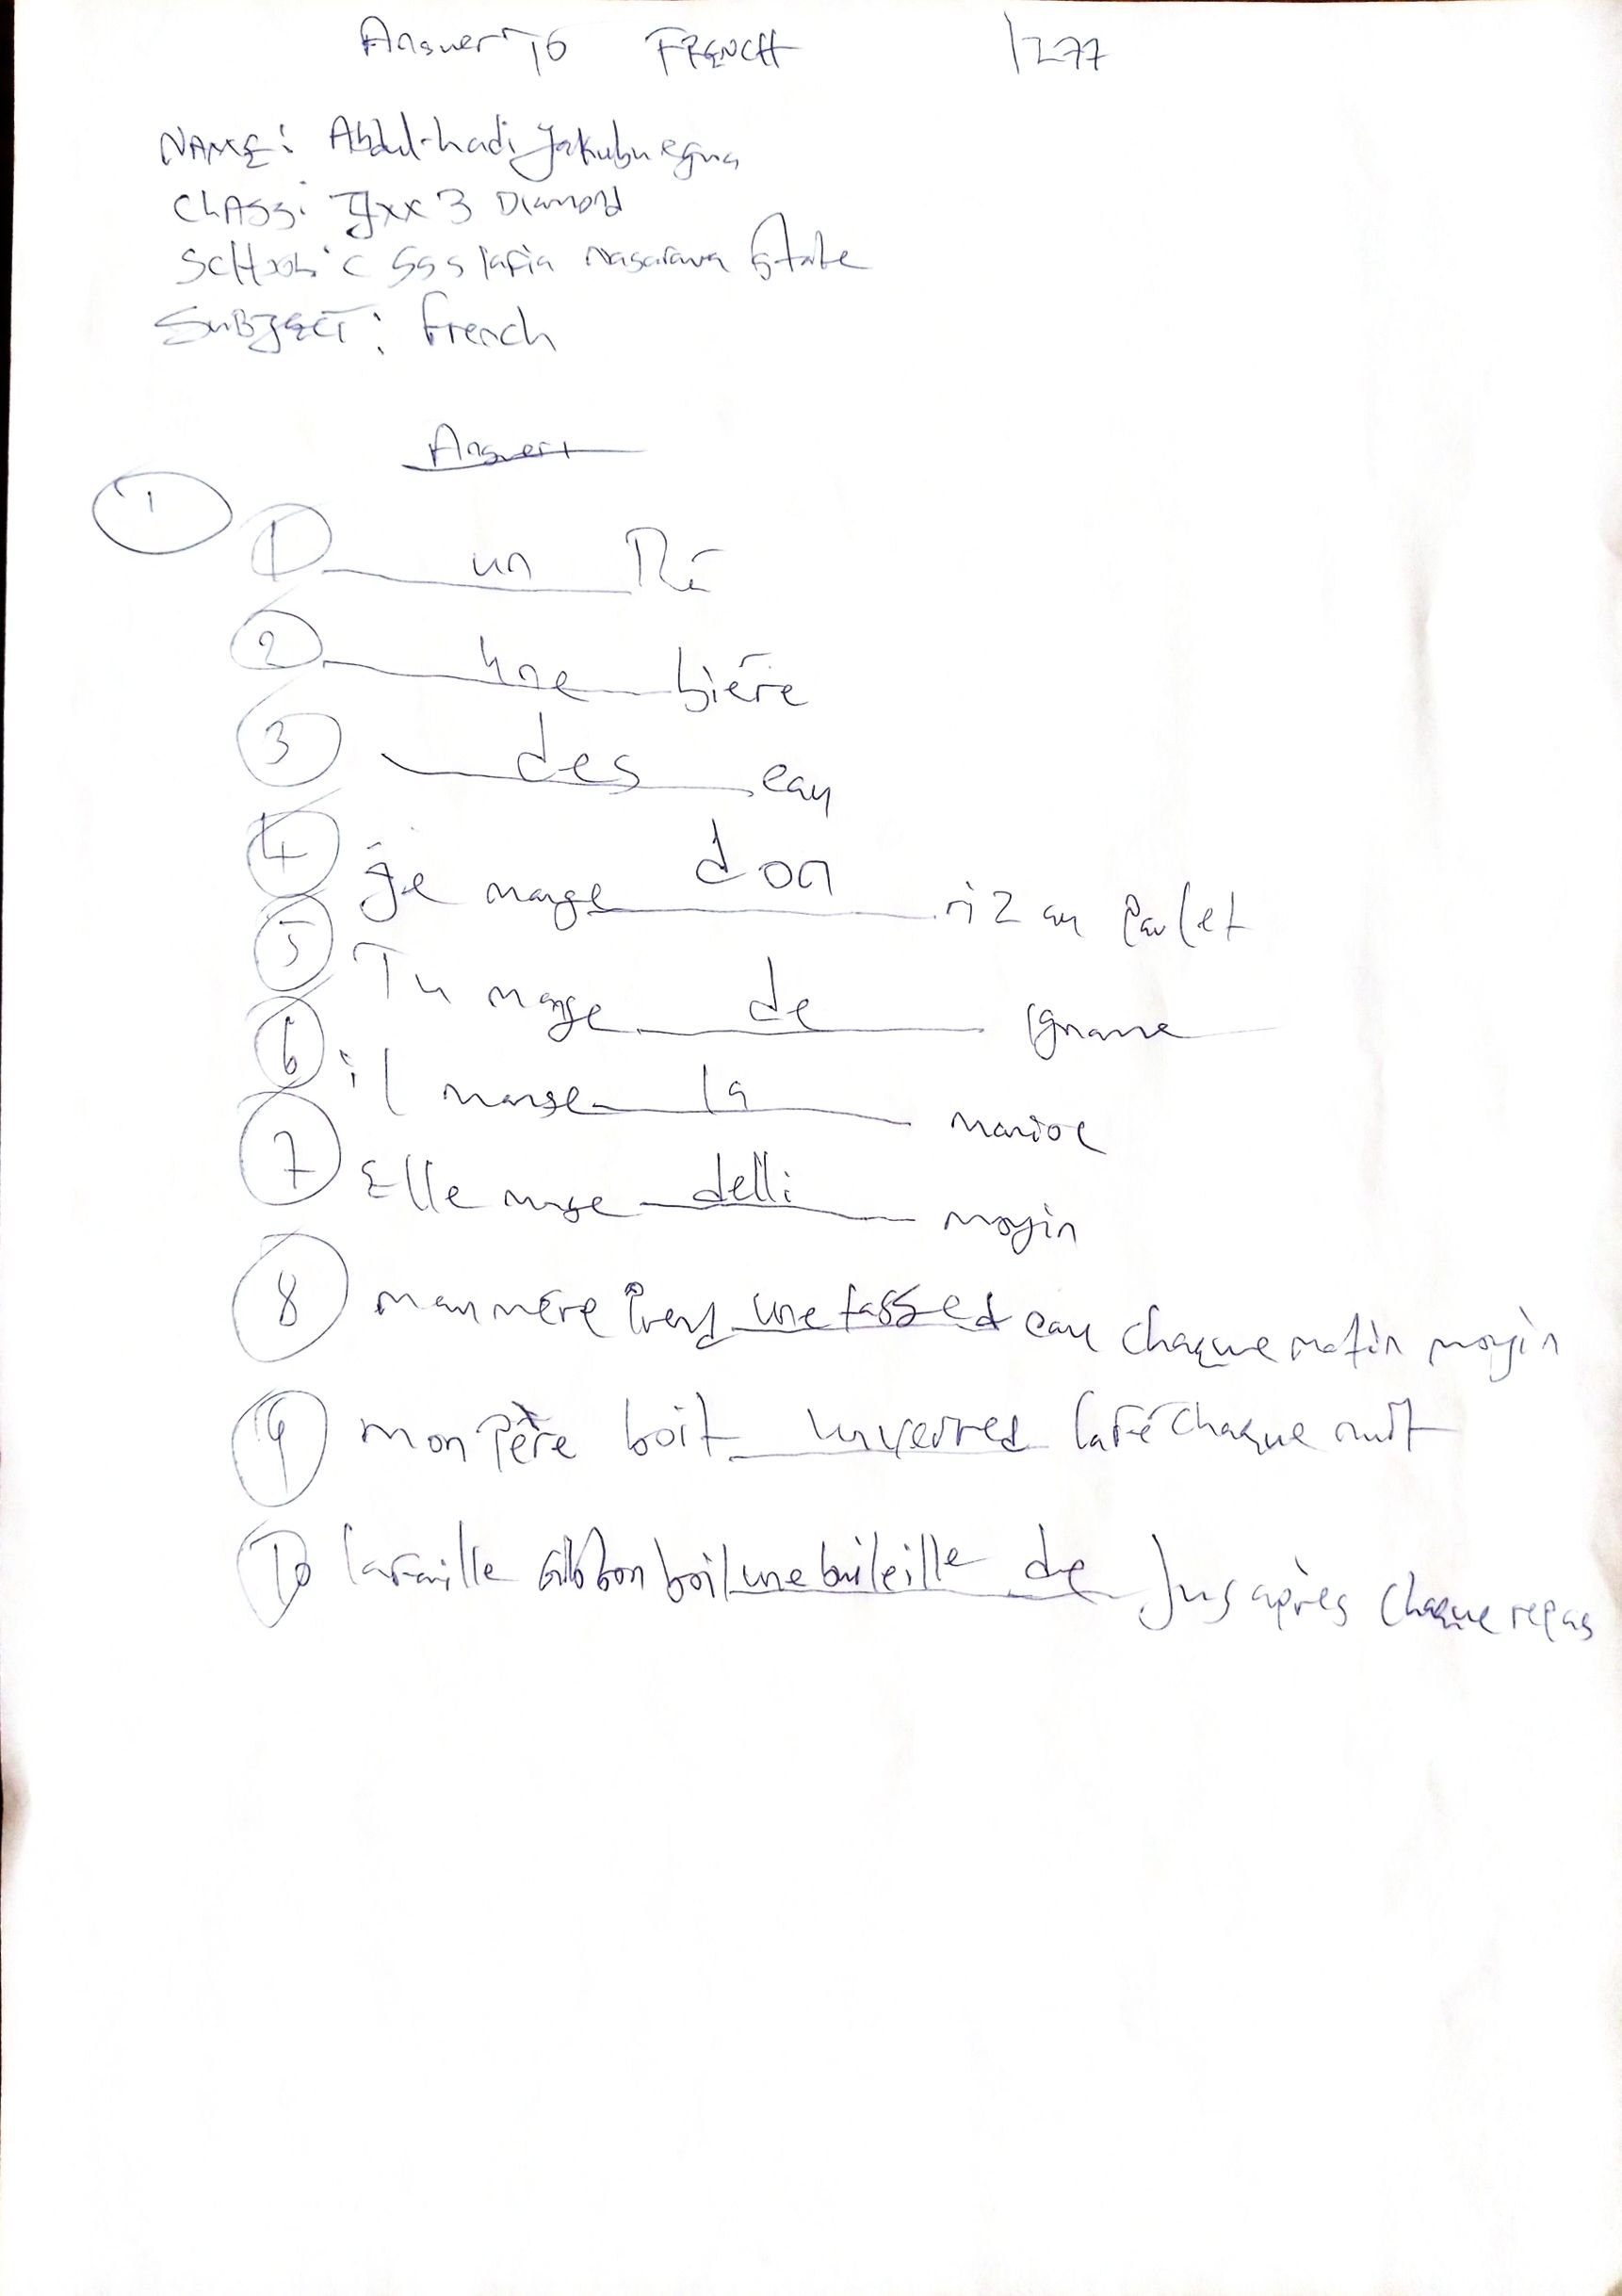 Answer To FRENCH 1277
NAME: Abdul-hadi Yakubu egwa
CLASS: 3 Diamond
SCHOOL: C GSS lafia Nasarawa State
SUBJECT: French
Answer
1
1 un Thé
2 une bière
3 des eau
4 Je mange don riz au Poulet
5 Tu mange de Igname
6 il mange la manioc
7 Elle mange delli moyin
8 mère Prend une tasse d eau chaque matin moyin
9 mon Père boit un verre d Café chaque nuit
10 boit une de Jus après chaque repas